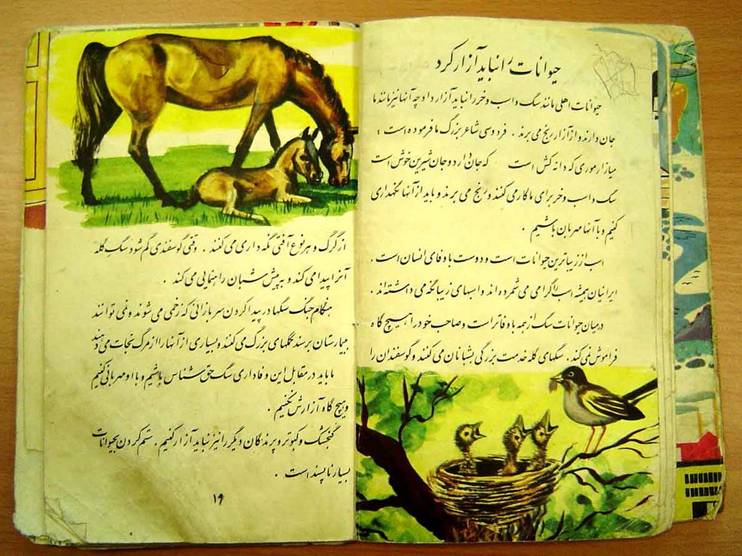 حیوانات را نباید آزار کرد
حیوانات اهلی مانند سگ و اسب و خر را نباید آزار داد و چه آنها نیز مانند ما
جان دارند و از آزار رنج می برند . فردوسی شاعر بزرگ ما فرموده است :
میازار موری که دانه کش است که جان دارد و جان شیرین خوش است
سگ و اسب و خر برای ما کار می کنند و رنج می برند و باید از آنها نگهداری
کنیم و با آنها مهربان باشیم .
اسب از زیباترین حیوانات است و دوست با وفای انسان است .
ایرانیان همیشه اسب را گرامی می شمرده اند و اسبهای زیبا نگه می داشته اند .
در میان حیوانات سگ از همه با وفاتر است و صاحب خود را هیچ گاه
فراموش نمی کند . سگهای گله خدمت بزرگی بشبانان می کنند و گوسفندان را
از گرگ و هر نوع آفتی نگه داری می کنند . وقتی گوسفندی گم شود سگ گله
آنرا پیدا می کند و به پیش شبان راهنمایی می کند .
هنگام جنگ سگها در پیدا کردن سربازانی که زخمی می شوند و نمی توانند
به بیمارستان برسند کمکهای بزرگ می کنند و بسیاری از آنها را از مرگ نجات می دهند
ما باید در مقابل این وفاداری سگ حق شناس باشیم و با او مهربانی کنیم
و هیچ گاه آزارش نکنیم .
گنجشک و کبوتر و پرندگان دیگر را نیز نباید آزار کنیم . ستم کردن بحیوانات
بسیار ناپسند است .
۱۹